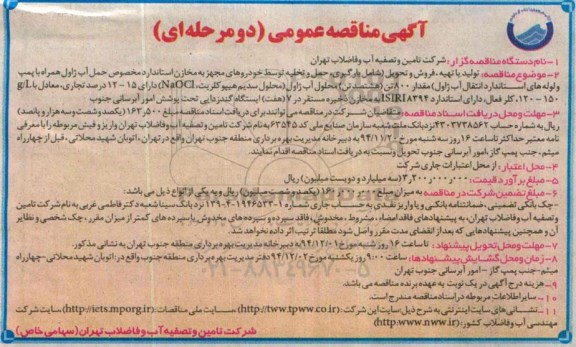 آگهی مناقصه عمومی (دو مرحله ای)
۱-نام دستگاه مناقصه گزار: شرکت تامین و تصفیه آب و فاضلاب تهران
۲-موضوع مناقصه: تولید یا تهیه، فروش و تحویل (شامل بارگیری، حمل و تخلیه توسط خودروهای مجهز به مخازن استاندارد مخصوص حمل آب ژاول همراه با پمپ
و لوله های استاندارد انتقال آب ژاول) مقدار ۸۰۰ تن (هشتصد تن) محلول آب ژاول (محلول سدیم هیپوکلریت، NaOCl) دارای ۱۵-۱۲ درصد تجاری، معادل با g/L
۱۵۰-۱۲۰، کلر فعال، دارای استاندارد ISIRI ۸۳۹۴ به مخازن ذخیره مستقر در ۷ (هفت) ایستگاه گندزدایی تحت پوشش امور آبرسانی جنوب
۳-مهلت و محل دریافت اسناد مناقصه: متقاضیان شرکت در مناقصه می توانند برای دریافت اسناد مناقصه مبلغ ۱۶۳,۵۰۰ (یکصد و شصت و سه هزار و پانصد)
ریال به شماره حساب ۴۳۰۳۷۳۸۵۶۲ نزد بانک ملت شعبه سازمان صنایع ملی کد ۶۳۵۴۵ به نام شرکت تامین و تصفیه آب و فاضلاب تهران واریز و فیش مربوطه را با معرفی
نامه معتبر حداکثر تا ساعت ۱۶ روز سه شنبه مورخ ۹۴/۱۱/۲۰ به دبیرخانه مدیریت بهره برداری منطقه جنوب تهران واقع در تهران، اتوبان شهید محلاتی، قبل از چهارراه
میثم، جنب پمپ گاز، امور آبرسانی جنوب تحویل و نسبت به دریافت اسناد مناقصه اقدام نمایند.
۴-محل اعتبار: از محل اعتبارات جاری شرکت
۵-مبلغ برآورد قیمت: ۳,۲۰۰,۰۰۰,۰۰۰ (سه میلیارد و دویست میلیون) ریال
۶-مبلغ تضمین شرکت در مناقصه: به میزان مبلغ ۱۶۰,۰۰۰,۰۰۰ (یکصد و شصت میلیون) ریال و به یکی از انواع ذیل می باشد:
-چک بانکی تضمینی، ضمانتنامه بانکی و یا واریز نقدی به حساب جاری شماره ۱-۱۹۴۶۵۲۳-۴-۱۳۹ نزد بانک سینا شعبه دکتر فاطمی غربی به نام شرکت تامین
و تصفیه آب و فاضلاب تهران، به پیشنهادهای فاقد امضاء، مشروط، مخدوش، فاقد سپرده و سپرده های مخدوش یا سپرده های کمتر از میزان مقرر، چک شخصی و نظایر
آن و همچنین پیشنهادهایی که بعد از انقضای مدت مقرر واصل شود مطلقا ترتیب اثر داده نخواهد شد.
۷-مهلت و محل تحویل پیشنهاد: تا ساعت ۱۶ روز شنبه مورخ ۹۴/۱۲/۰۱ به دبیرخانه مدیریت بهره برداری منطقه جنوب تهران به نشانی مذکور.
۸-زمان و محل گشایش پیشنهادها: ساعت ۹:۰۰ روز یکشنبه مورخ ۹۴/۱۲/۰۲ دفتر مدیریت بهره برداری منطقه جنوب واقع در: اتوبان شهید محلاتی -چهارراه
میثم-جنب پمپ گاز - امور آبرسانی جنوب تهران
۹-هزینه درج آگهی در یک نوبت به عهده برنده مناقصه می باشد.
۱۰-سایر اطلاعات مربوطه در اسناد مناقصه مندرج است.
۱۱-نشانی های سایت اینترنتی به شرح ذیل: سایت این شرکت (http://tww.tpww.co.ir)، سایت ملی مناقصات (http://iets.mporg.ir)، سایت شرکت
مهندسی آب و فاضلاب کشور: (http:www.nww.ir)
شرکت تامین و تصفیه آب و فاضلاب تهران (سهامی خاص)
۰۲۱-۸۸۳۴۹۶۷۰-۵